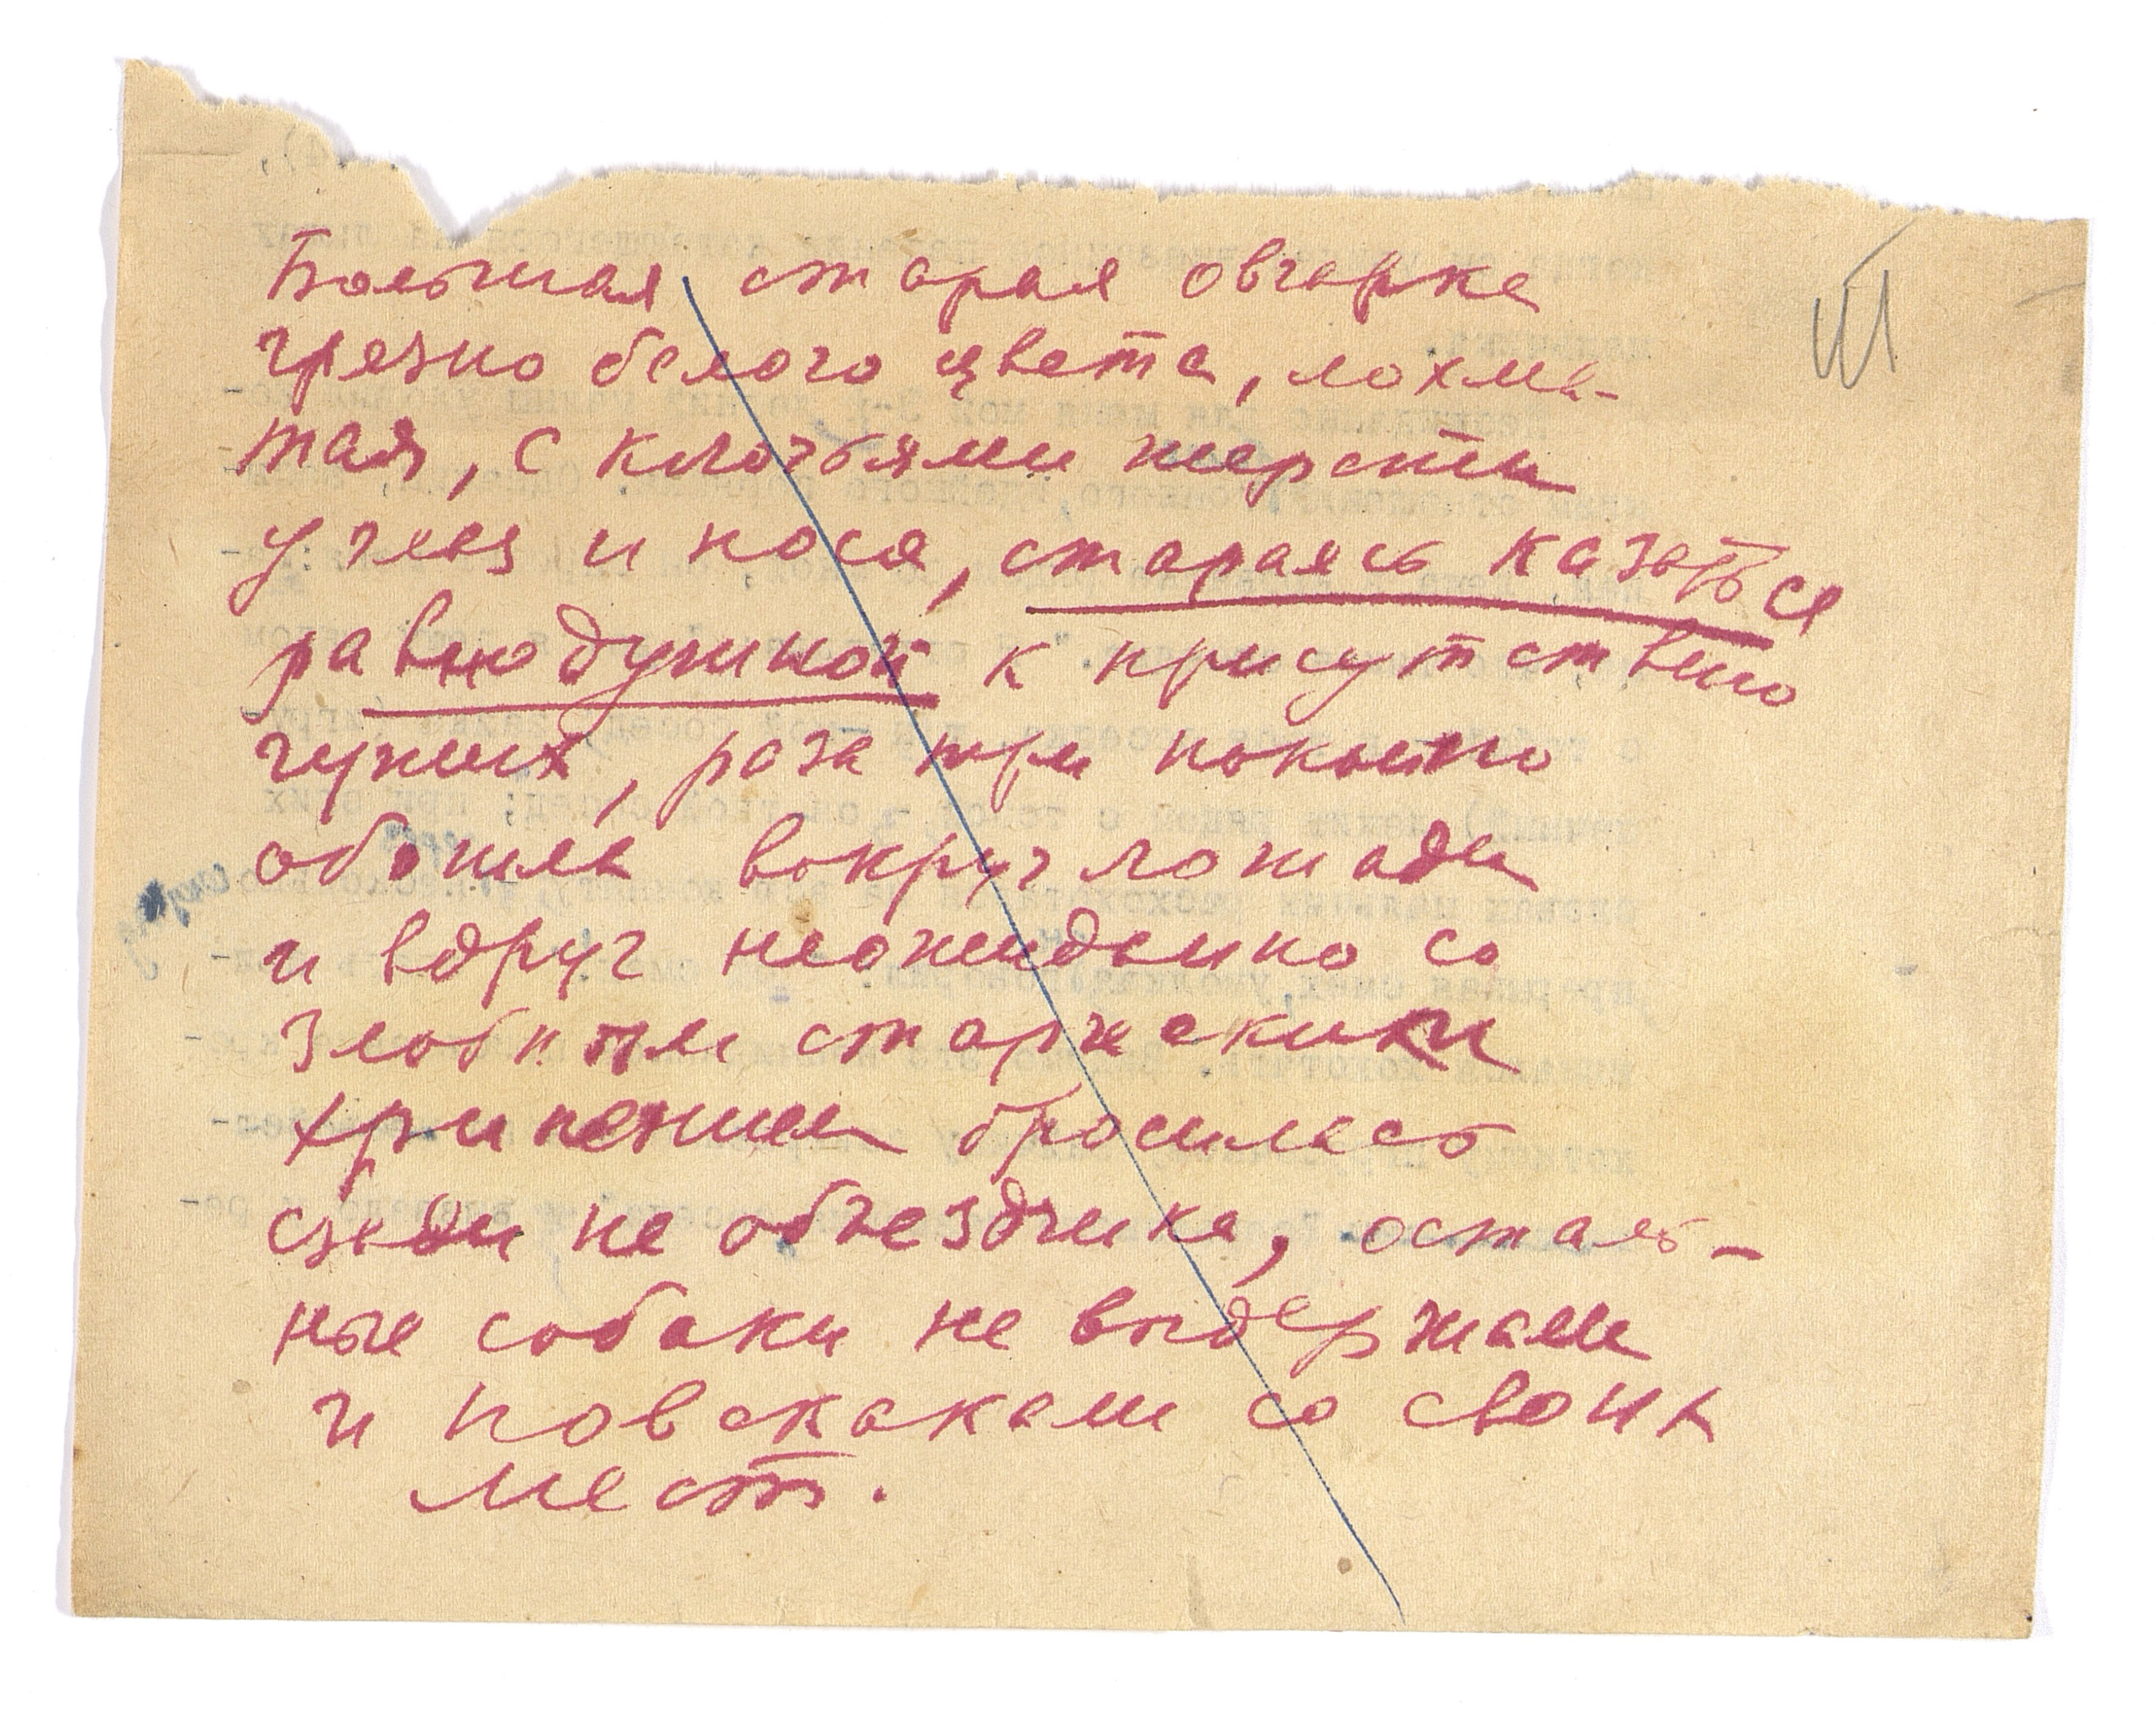 Большая старая овчарка
грязно белого цвета, лохма-
тая, с клочьями шерсти
у глаз и носа, стараясь казаться
равнодушной к присутствию
чужих, раза три покойно
обошла вокруг лошади
и вдруг неожиданно со
злобным старческим
хрипением бросилась
сзади на объездчика, осталь-
ные собаки не выдержали
и повскакали со своих
мест.